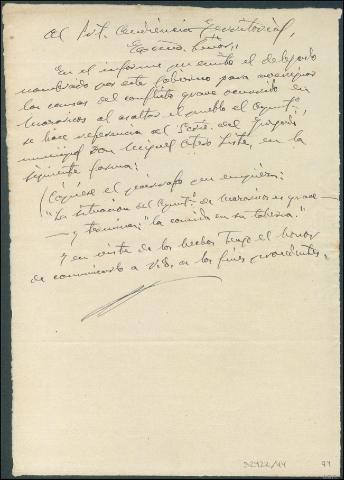 Al Pte. Audiencia Territorial,
Excmo. Señor:
En el informe que emite el delegado
nombrado por este Gobierno para averiguar
las causas del conflicto grave ocurrido en
al asaltar el pueblo el Ayunt.º
se hace referencia al Juzgado
municipal Don Miguel Otero en la
siguiente forma:
(Cópiese el párrafo que empieza:
"La situación del Ayunt.º de es grave
— y termina: "la comida en su cabeza."
Y en vista de los hechos tengo el honor
de comunicarlo a V.E. a los fines procedentes.
32922/44 74